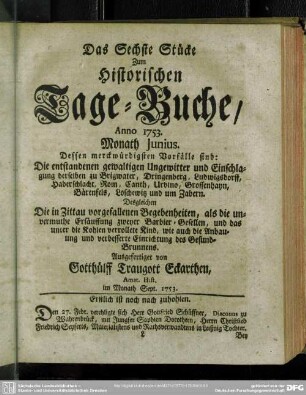 Das Sechste Stücke
Zum
Historischen
Tage-Buche,
Anno 1753.
Monath Junius.
Dessen merckwürdigsten Vorfälle sind:
Die entstandenen gewaltigen Ungewitter und Einschla-
gung derselben zu Brigwater, Dringenberg, Ludwigsdorff,
Haberschlacht, Rom, Canth, Urbino, Grossenhayn,
Bärenfels, Loschwitz und um Zabern.
Desgleichen
Die in Zittau vorgefallenen Begebenheiten, als die un-
vermuthe Ersäuffung zweyer Barbier-Gesellen, und das
unter die Kohlen verrollete Kind, wie auch die Anbau-
ung und verbesserte Einrichtung des Gesund-
Brunnens.
Ausgefertiget von
Gotthülff Traugott Eckarthen,
Amat. Hist.
im Monath Sept. 1753.
Erstlich ist noch nach zuhohlen.
Den 27. Febr. verehligte sich Herr Gottfried Schüssner, Diaconus zu
Walterdbrück, mit Jungfer Dorothen, Herrn Christlieb
Friedrich Seyferts, Materialistens und Rathsverwandtens in Tochter.
Bey